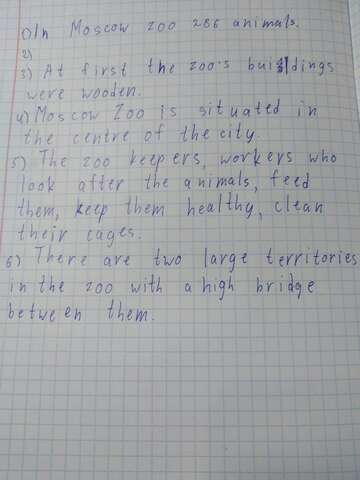 1) In Moscow zoo 286 animals.
2)
3) At first the zoo's buildings
were wooden.
4) Moscow Zoo is situated in
the centre of the city.
5) The zoo keepers, workers who
look after the animals, feed
them, keep them healthy, clean
their cages.
6) There are two large territories
in the zoo with a high bridge
between them.